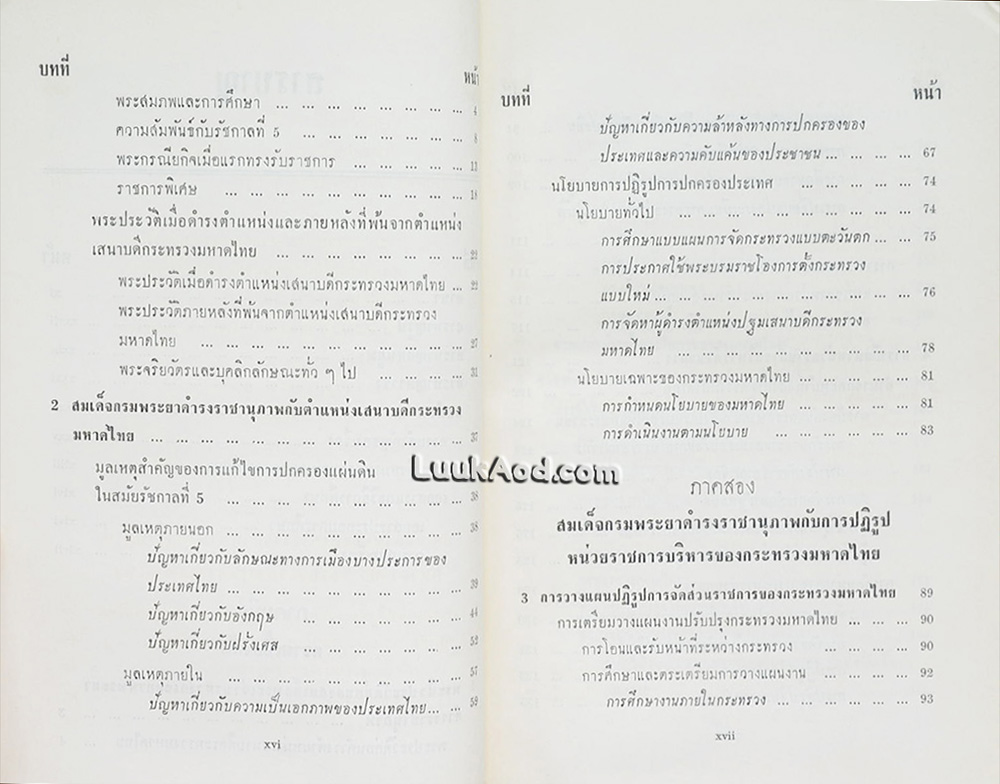 บทที่ หน้า
พระสมภพและการศึกษา ... ... ... ... ... ... ... ... 4
ความสัมพันธ์กับรัชกาลที่ 5 ... ... ... ... ... ... ... 8
พระกรณียกิจเมื่อแรกทรงรับราชการ ... ... ... ... ... 11
ราชการพิเศษ ... ... ... ... ... ... ... ... ... ... 18
พระประวัติเมื่อดำรงตำแหน่งและภายหลังที่พ้นจากตำแหน่ง
เสนาบดีกระทรวงมหาดไทย ... ... ... ... ... ... ... ... 22
พระประวัติเมื่อดำรงตำแหน่งเสนาบดีกระทรวงมหาดไทย ... 22
พระประวัติภายหลังที่พ้นจากตำแหน่งเสนาบดีกระทรวง
มหาดไทย ... ... ... ... ... ... ... ... ... ... ... 27
พระจริยวัตรและบุคลิกลักษณะทั่ว ๆ ไป ... ... ... ... 31
2 สมเด็จกรมพระยาดำรงราชานุภาพกับตำแหน่งเสนาบดีกระทรวง
มหาดไทย ... ... ... ... ... ... ... ... ... ... ... ... 37
มูลเหตุสำคัญของการแก้ไขการปกครองแผ่นดิน
ในสมัยรัชกาลที่ 5 ... ... ... ... ... ... ... ... ... ... 38
มูลเหตุภายนอก ... ... ... ... ... ... ... ... ... ... 38
ปัญหาเกี่ยวกับลักษณะทางการเมืองบางประการของ
ประเทศไทย ... ... ... ... ... ... ... ... ... ... 39
ปัญหาเกี่ยวกับอังกฤษ ... ... ... ... ... ... ... ... 44
ปัญหาเกี่ยวกับฝรั่งเศส ... ... ... ... ... ... ... ... 52
มูลเหตุภายใน ... ... ... ... ... ... ... ... ... ... 57
ปัญหาเกี่ยวกับความเป็นเอกภาพของประเทศไทย... ... 59
xvi
บทที่ หน้า
ปัญหาเกี่ยวกับความล้าหลังทางการปกครองของ
ประเทศและความคับแค้นของประชาชน ... ... ... ... 67
นโยบายการปฏิรูปการปกครองประเทศ ... ... ... ... ... 74
นโยบายทั่วไป ... ... ... ... ... ... ... ... ... ... 74
การศึกษาแบบแผนการจัดกระทรวงแบบตะวันตก ... ... 75
การประกาศใช้พระบรมราชโองการตั้งกระทรวง
แบบใหม่ ... ... ... ... ... ... ... ... ... ... ... 76
การจัดหาผู้ดำรงตำแหน่งปฐมเสนาบดีกระทรวง
มหาดไทย ... ... ... ... ... ... ... ... ... ... 78
นโยบายเฉพาะของกระทรวงมหาดไทย ... ... ... ... ... 81
การกำหนดนโยบายของมหาดไทย ... ... ... ... ... 81
การดำเนินงานตามนโยบาย ... ... ... ... ... ... 83
ภาคสอง
สมเด็จกรมพระยาดำรงราชานุภาพกับการปฏิรูป
หน่วยราชการบริหารของกระทรวงมหาดไทย
3 การวางแผนปฏิรูปการจัดส่วนราชการของกระทรวงมหาดไทย 89
การเตรียมวางแผนงานปรับปรุงกระทรวงมหาดไทย ... ... ... 90
การโอนและรับหน้าที่ระหว่างกระทรวง ... ... ... ... 90
การศึกษาและตระเตรียมการวางแผนงาน ... ... ... ... 92
การศึกษางานภายในกระทรวง ... ... ... ... ... ... 93
xvii
LuukAod.com